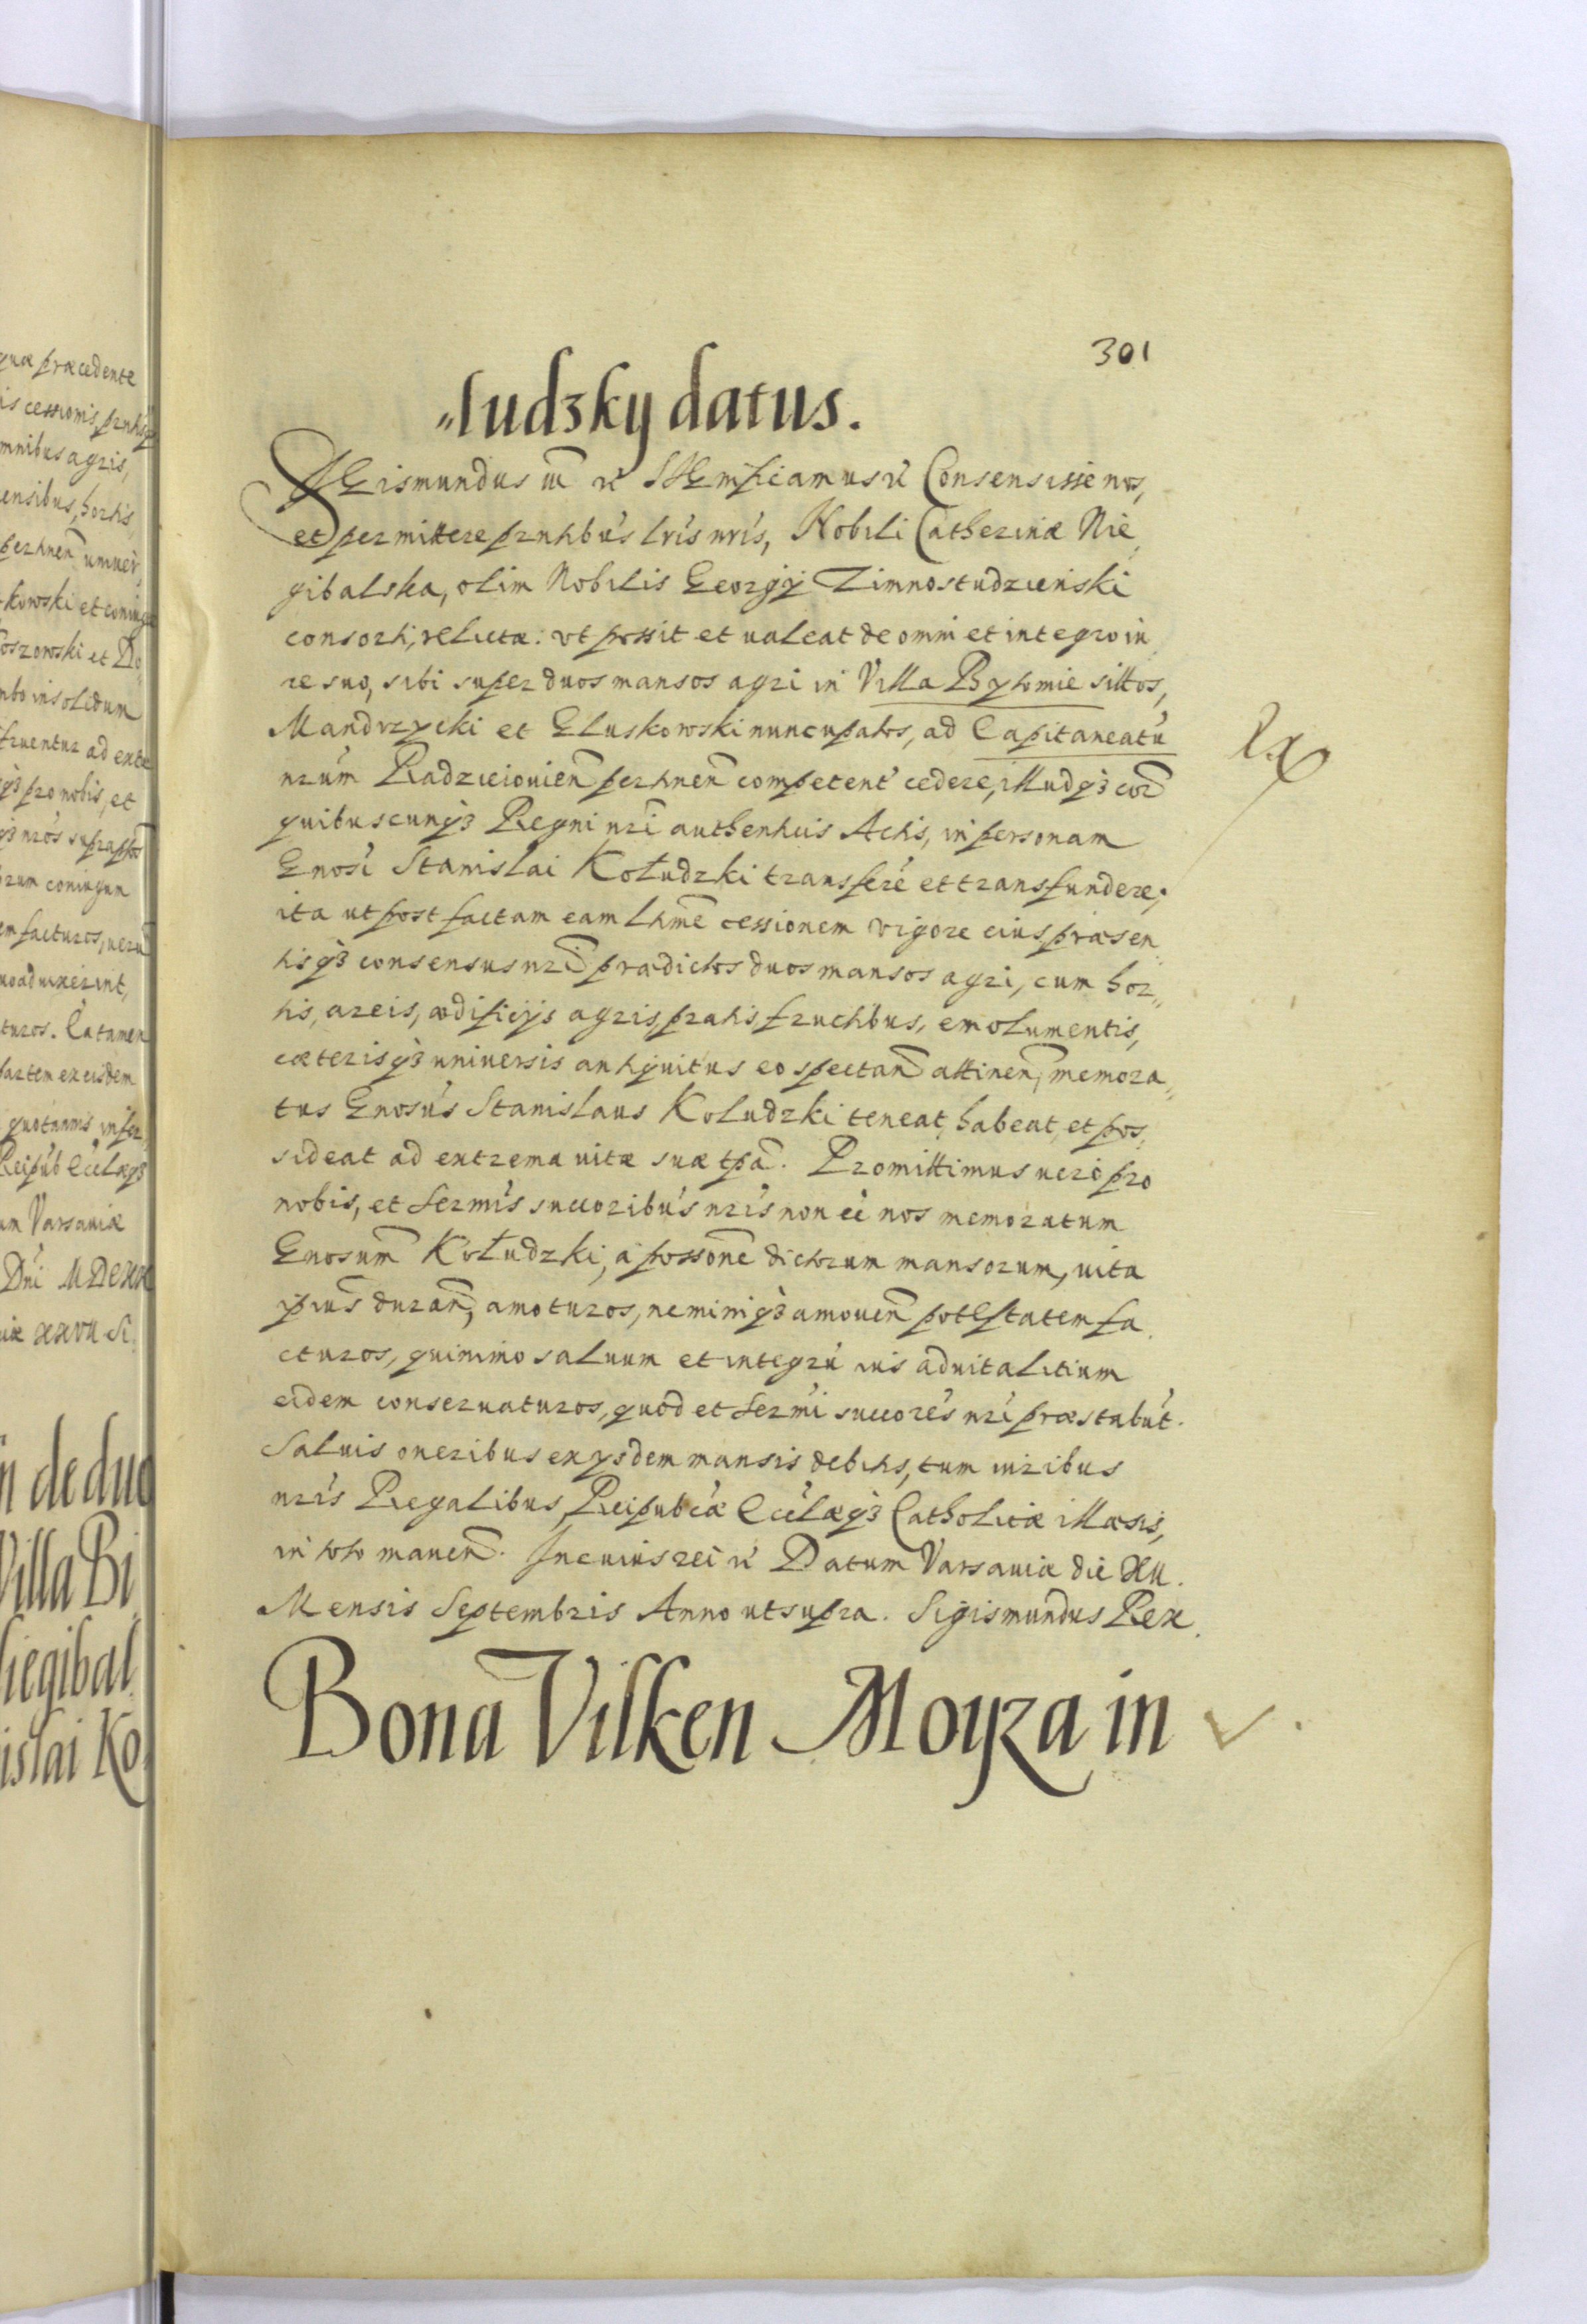 quæ præcedente
is cessionis, prnhs
mnibus agris,
ensibus, hortis
pertinen univer,
kowski et coniug
oszowski et Do
mbo insolidum
fruentur ad extr
qȝ pro nobis, et
qȝ nrós supraptos
orum coniugum
em facturos, verum
uoaduixerint,
turos. Catamen
partem ex eisdem
quotannis infer
Reipúb Ecclæqȝ
um Varsaviæ
Dní MDCXX
iæ XXVII Si.
n de duo
Villa Bi
liegibal
islai Ko
301
„ludzky datus.
SIGismundus III rc SIGnificamus rc Consensisse nos,
et permittere prntibús lrís nrís, Nobili Catherinæ Nie„
gibalska, olim Nobilis Georgij Zimnostudzieński
consorti, relictæ: vt possit et valeat de omni et integro iu„
re suo, sibi super duos mansos agri in Villa Bytomie sittos,
Mandrzycki et Gluskowski nuncupatos, ad Capitaneatũ
nrũm Radzieiovien pertinen competent cedere, illudqȝ corã
quibuscunqȝ Regni nri authenticis Actis, in personam
Gnosi Stanislai Kołudzki transferé et transfundere;
ita ut post factam eam lhme cessionem vigore eius, præsen„
tisqȝ consensus nri prædictos duos mansos agri, cum hor„
tis, areis, ædificijs agris, pratis fructibus, emolumentis,
cæterisqȝ universis antiquitus eo spectan attinen, memora„
tus Gnosús Stanislaus Koludzki teneat, habeat, et pos„
sideat ad extrema vitæ suæ tpa. Promittimus vero pro
nobis, et Sermís succoribús nrís non eè nos memoratum
Gnosum Kołudzki, à possone dictorum mansorum, vita
ipsius duran, amoturos, neminiqȝ amouen potestatem fa„
cturos, quinimo salvum et integrũ ius aduitalitium
eidem conservaturos, quod et Sermi succorés nri præstabũt.
Salvis oneribus ex ijsdem mansis debitis, tum iuribus
nrís Regalibus, Reipubcæ Ecclæqȝ Catholicæ illæsis,
in toto manen. In cuius rei rc Datum Varsaviæ die XII.
Mensis Septembris Anno ut supra. Sigismundus Rex.
Bona Vilken Moyza in